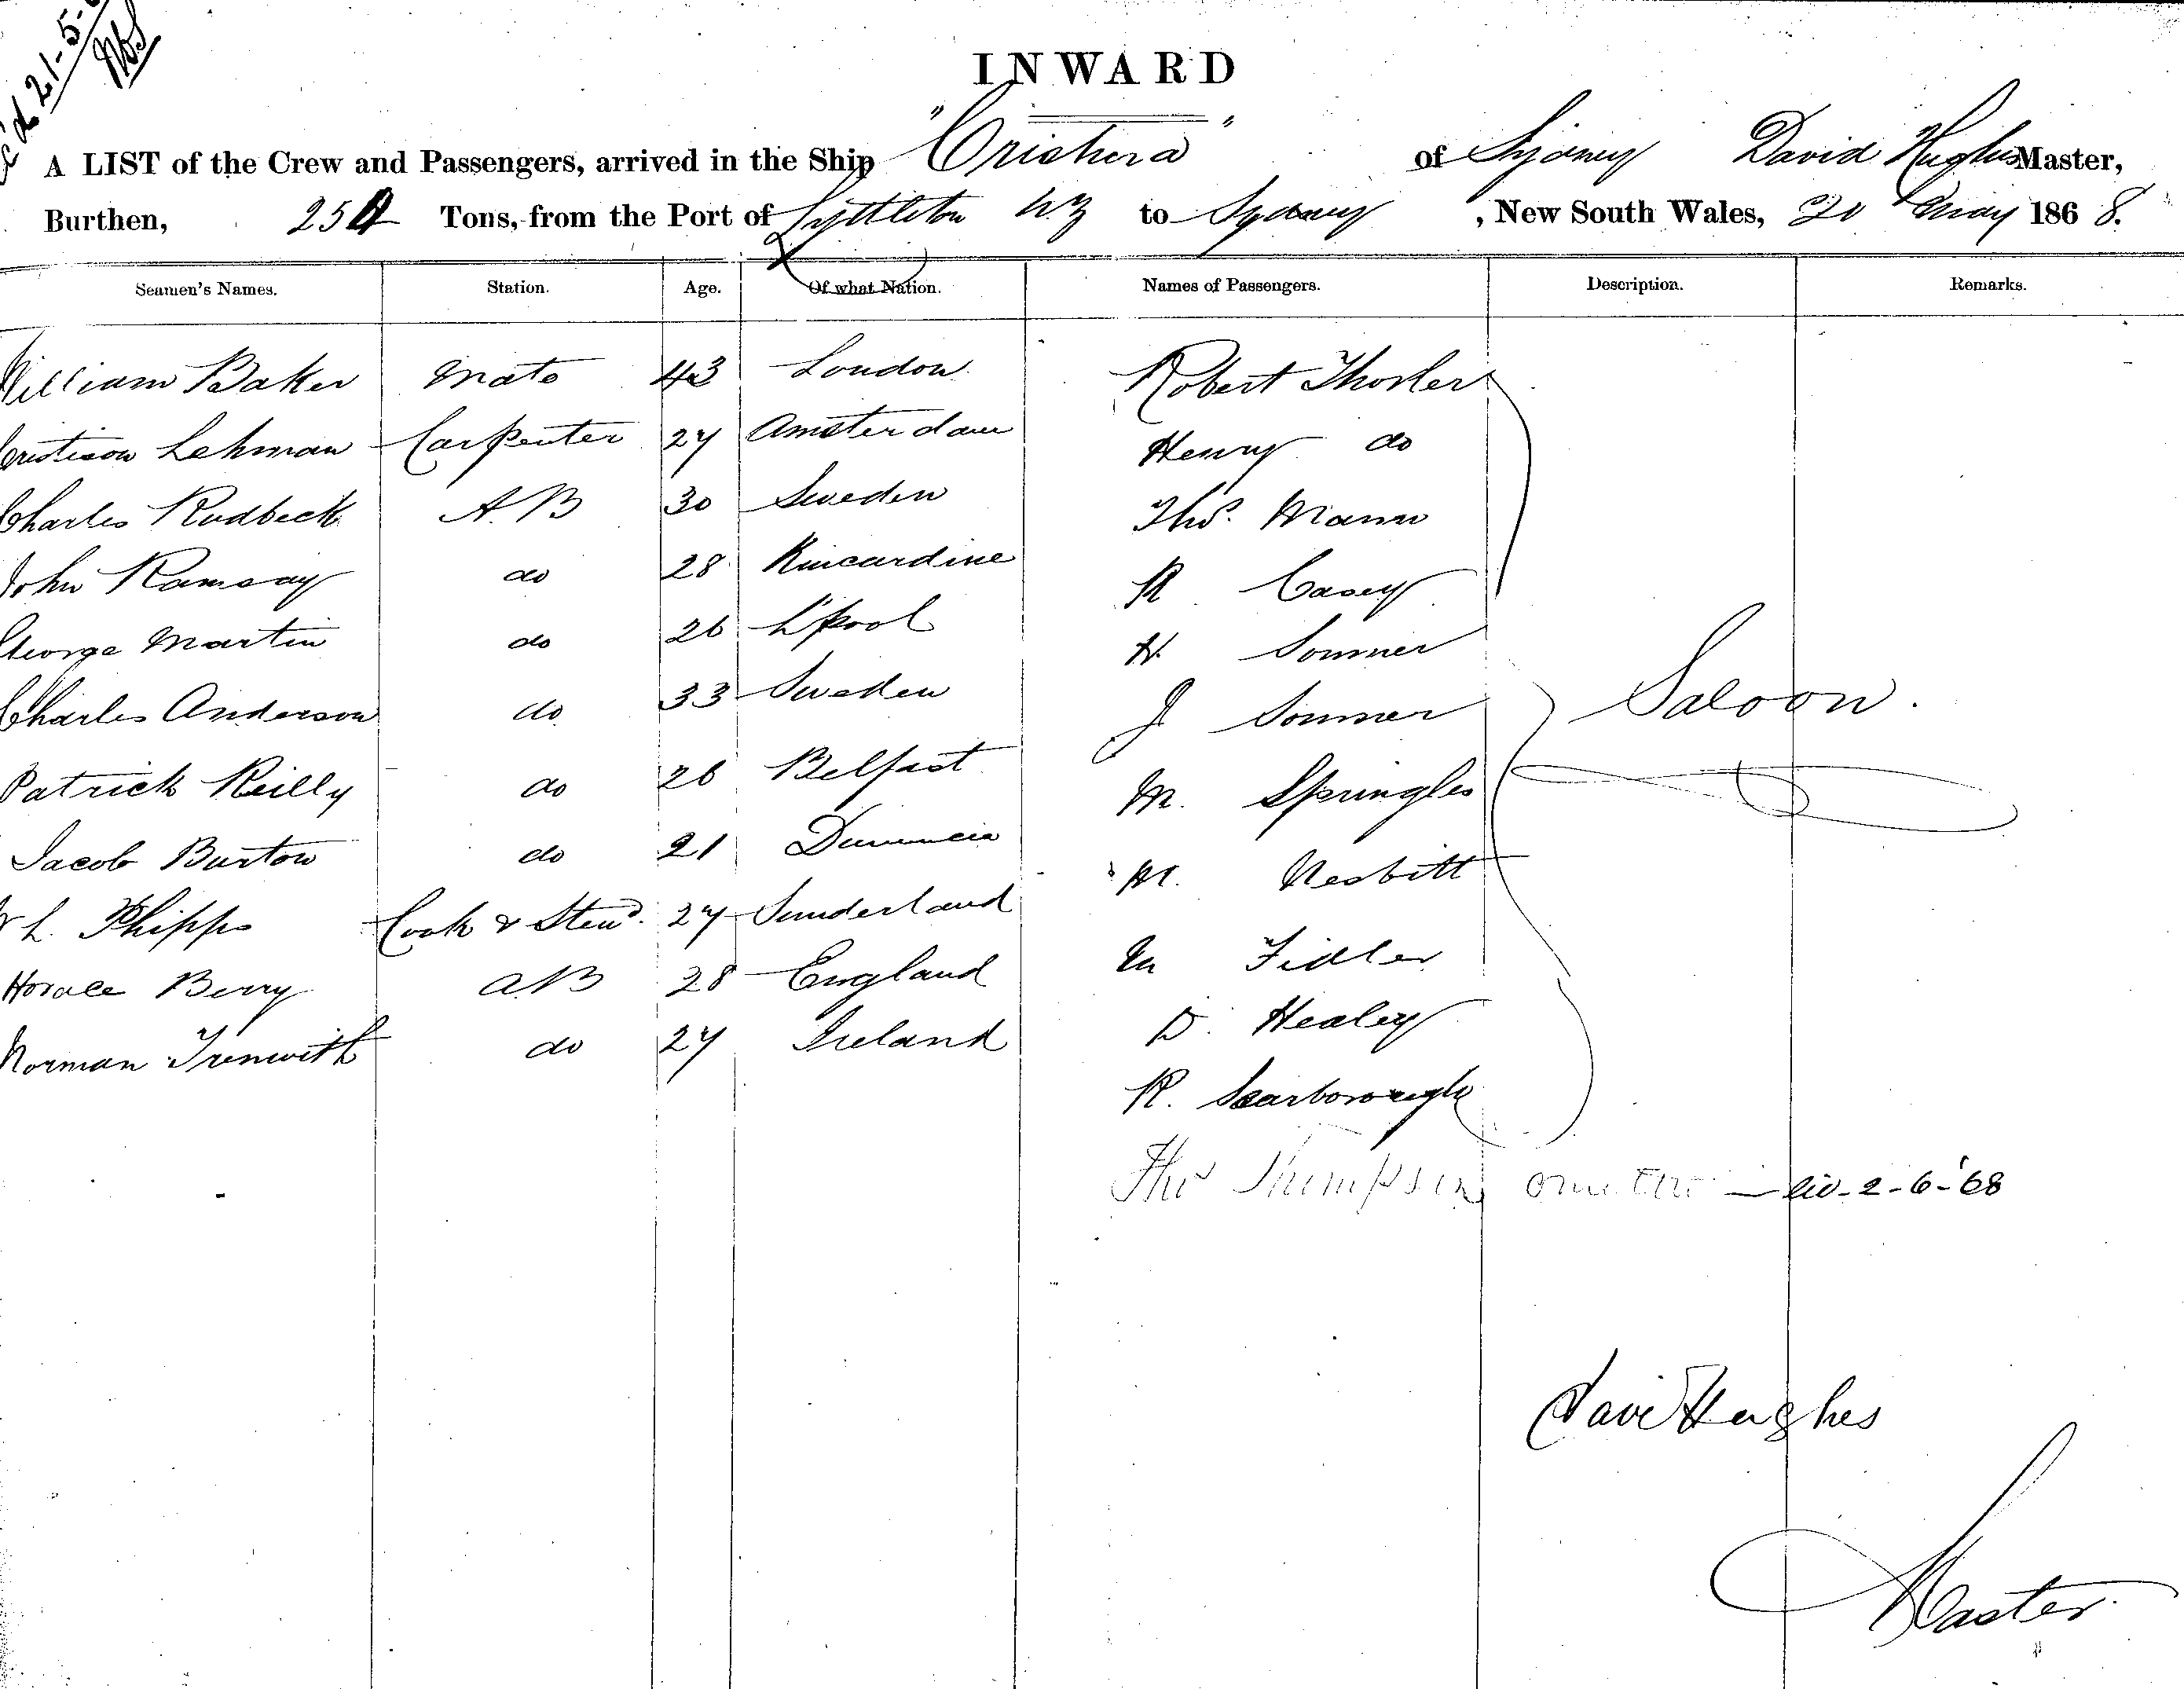 21-5-
INWARD
A LIST of the Crew and Passengers, arrived in the Ship "Orishera" of Sydney David Hughes Master,
Burthen, 25 Tons, from the Port of Lyttleton NZ to Sydney, New South Wales, 20 May 1868.
Seamen's Names. Station. Age. Of what Nation. Names of Passengers. Description. Remarks.
William Baker Mate 43 London Robert Thosler
Cristison Lehman Carpenter 27 Amsterdam Henry do
Charles Rudbeck A.B 30 Sweden Thos. Mann
John Ramsay do 28 Kincardine R Casey
George Martin do 26 L'pool H. Sommer
Charles Anderson do 33 Sweden J Sommer Saloon.
Patrick Reilly do 26 Belfast M. Springles
Jacob Burton do 21 M. Nesbitt
L. Phipps Cook & Stewd. 27 Sunderland Fidler
Horace Berry AB 28 England D. Healey
Norman Trenwith do 27 Ireland R. Scarborough
Thos Thompson 2-6-'68
David Hughes
Master